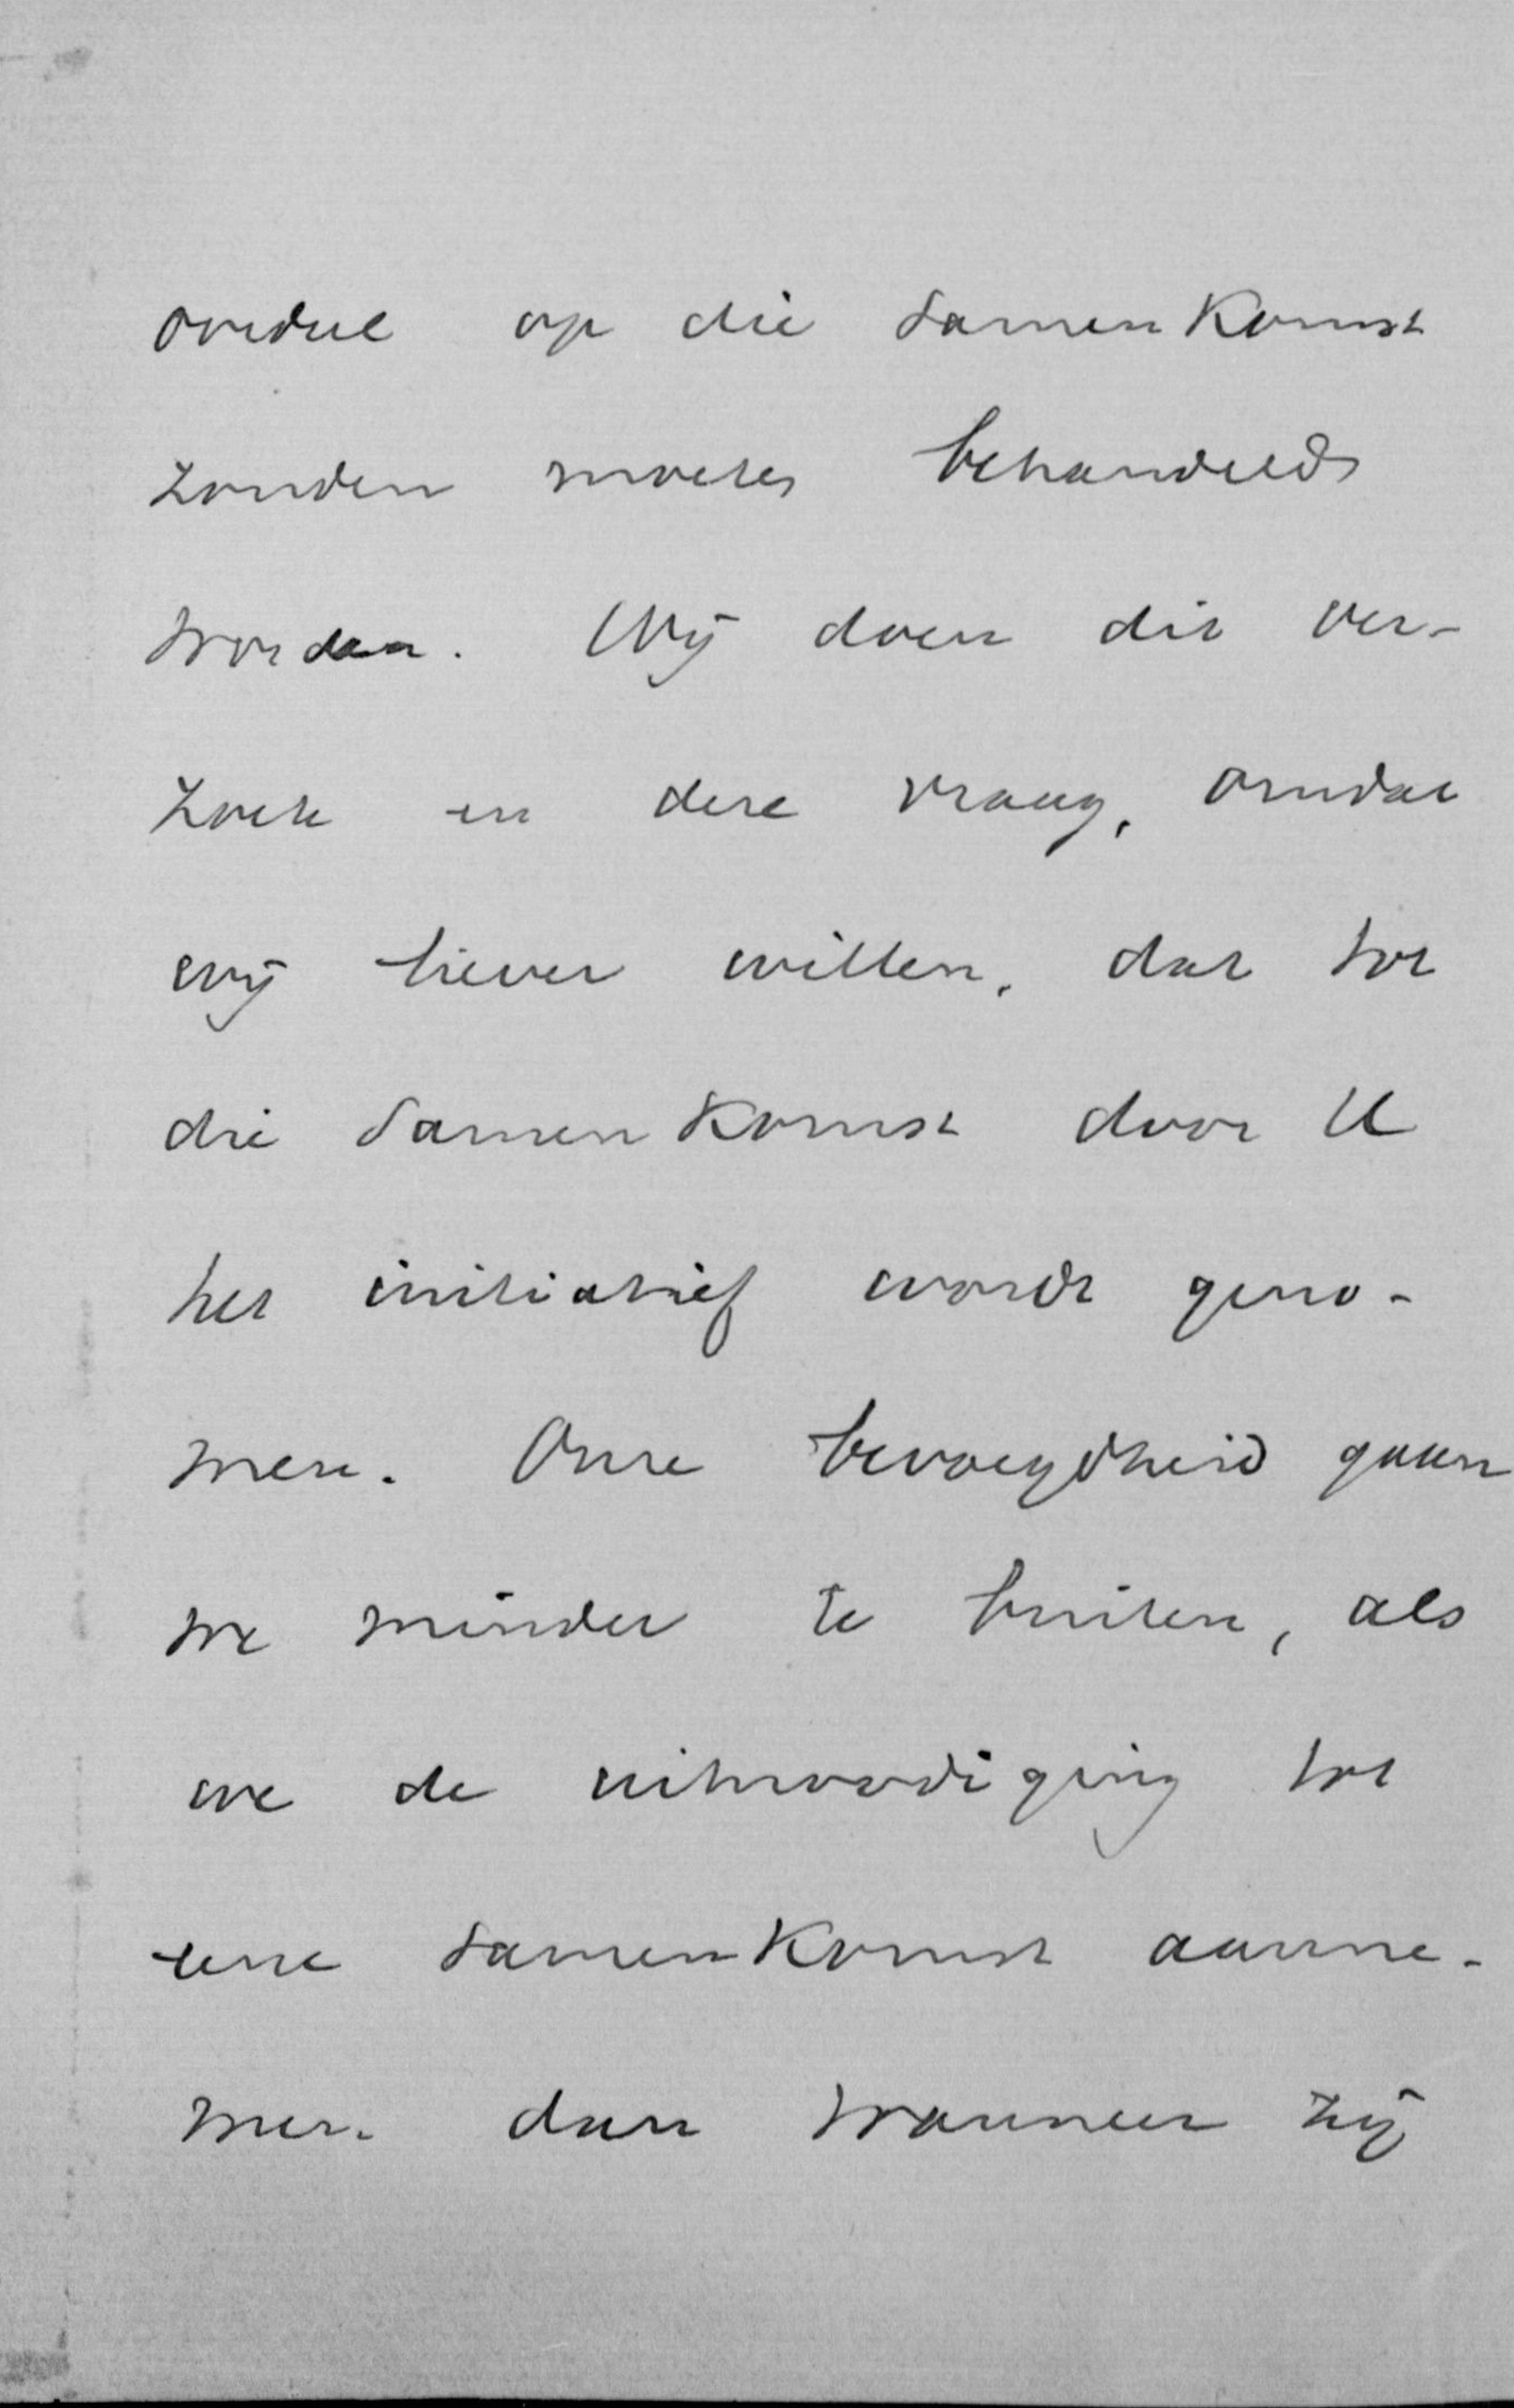 oordeel op die samenkomst
zouden moeten behandeld
worden. Wij doen dit ver-
zoek en deze vraag, omdat
wij liever willen, dat tot
die samenkomst door U
het initiatief wordt geno-
men. Onze bevoegdheid gaan
we minder te buiten, als
we de uitnoodiging tot
eene samenkomst aanne-
men. dan wanneer zij